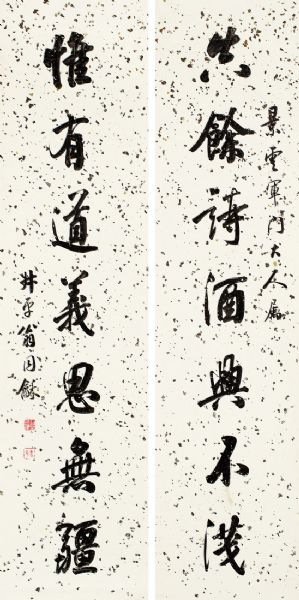 餘詩酒興不淺
景雲軍門大人屬
惟有道義思無疆
叔平翁同龢